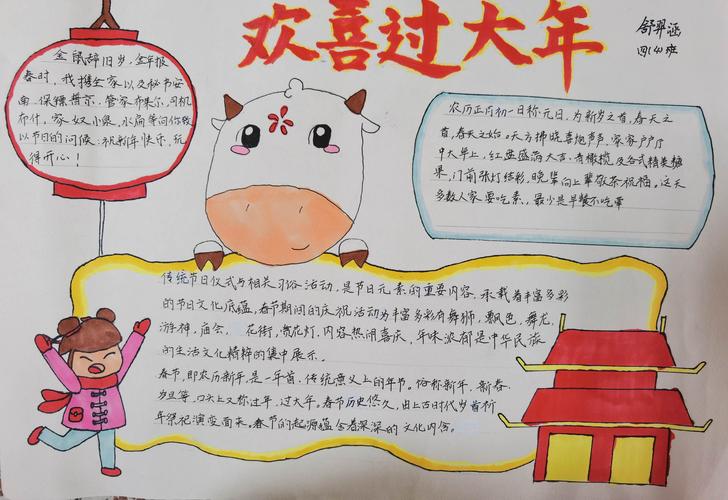 欢喜过大年
舒羿涵
四(4)班
金鼠辞旧岁,金牛报
春时,我携全家以及秘书安
南、保镖普尔、管家布莱尔、司机
乔什、家奴小泉、水扁等向你致
以节日的问候,祝新年快乐,玩
得开心!
农历正月初一日称元日,为新岁之首,春天之
首,春天之始。天方拂晓喜炮声声,家家户户厅
中大早上,红盘盛满大吉、青橄榄及各式精美糖
果,门前张灯结彩,晚辈向上辈敬茶祝福。这天
多数人家要吃素,最少是早餐不吃荤
传统节日仪式与相关习俗活动,是节日元素的重要内容,承载着丰富多彩
的节日文化底蕴。春节期间的庆祝活动为丰富多彩有舞狮,飘色,舞龙,
游神,庙会、花街,赏花灯,内容热闹喜庆,年味浓有是中华民族
的生活文化精粹的集中展示。
春节,即农历新年,是一年首,传统意义上的年节。俗称新年、新春、
岁旦等,口头上又称过年、过大年。春节历史悠久,由上古时代岁首祈
年祭祀演变而来。春节的起源蕴含着深深的文化内含。